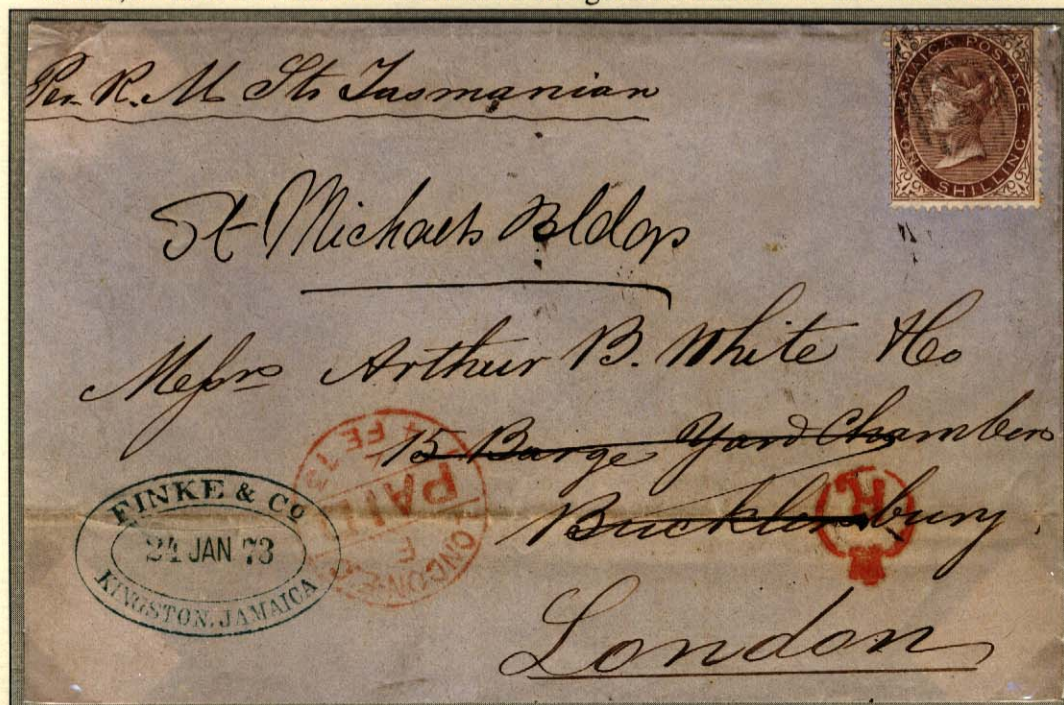 Per R. M. Str Tasmanian
JAMAICA POSTAGE
ONE SHILLING
St Michaels Bldgs
Messrs Arthur B. White & Co
15 Barge Yard Chambers
Bucklersbury
London
FINKE & Co
24 JAN 73
KINGSTON, JAMAICA
LONDON
PAID
FE 73